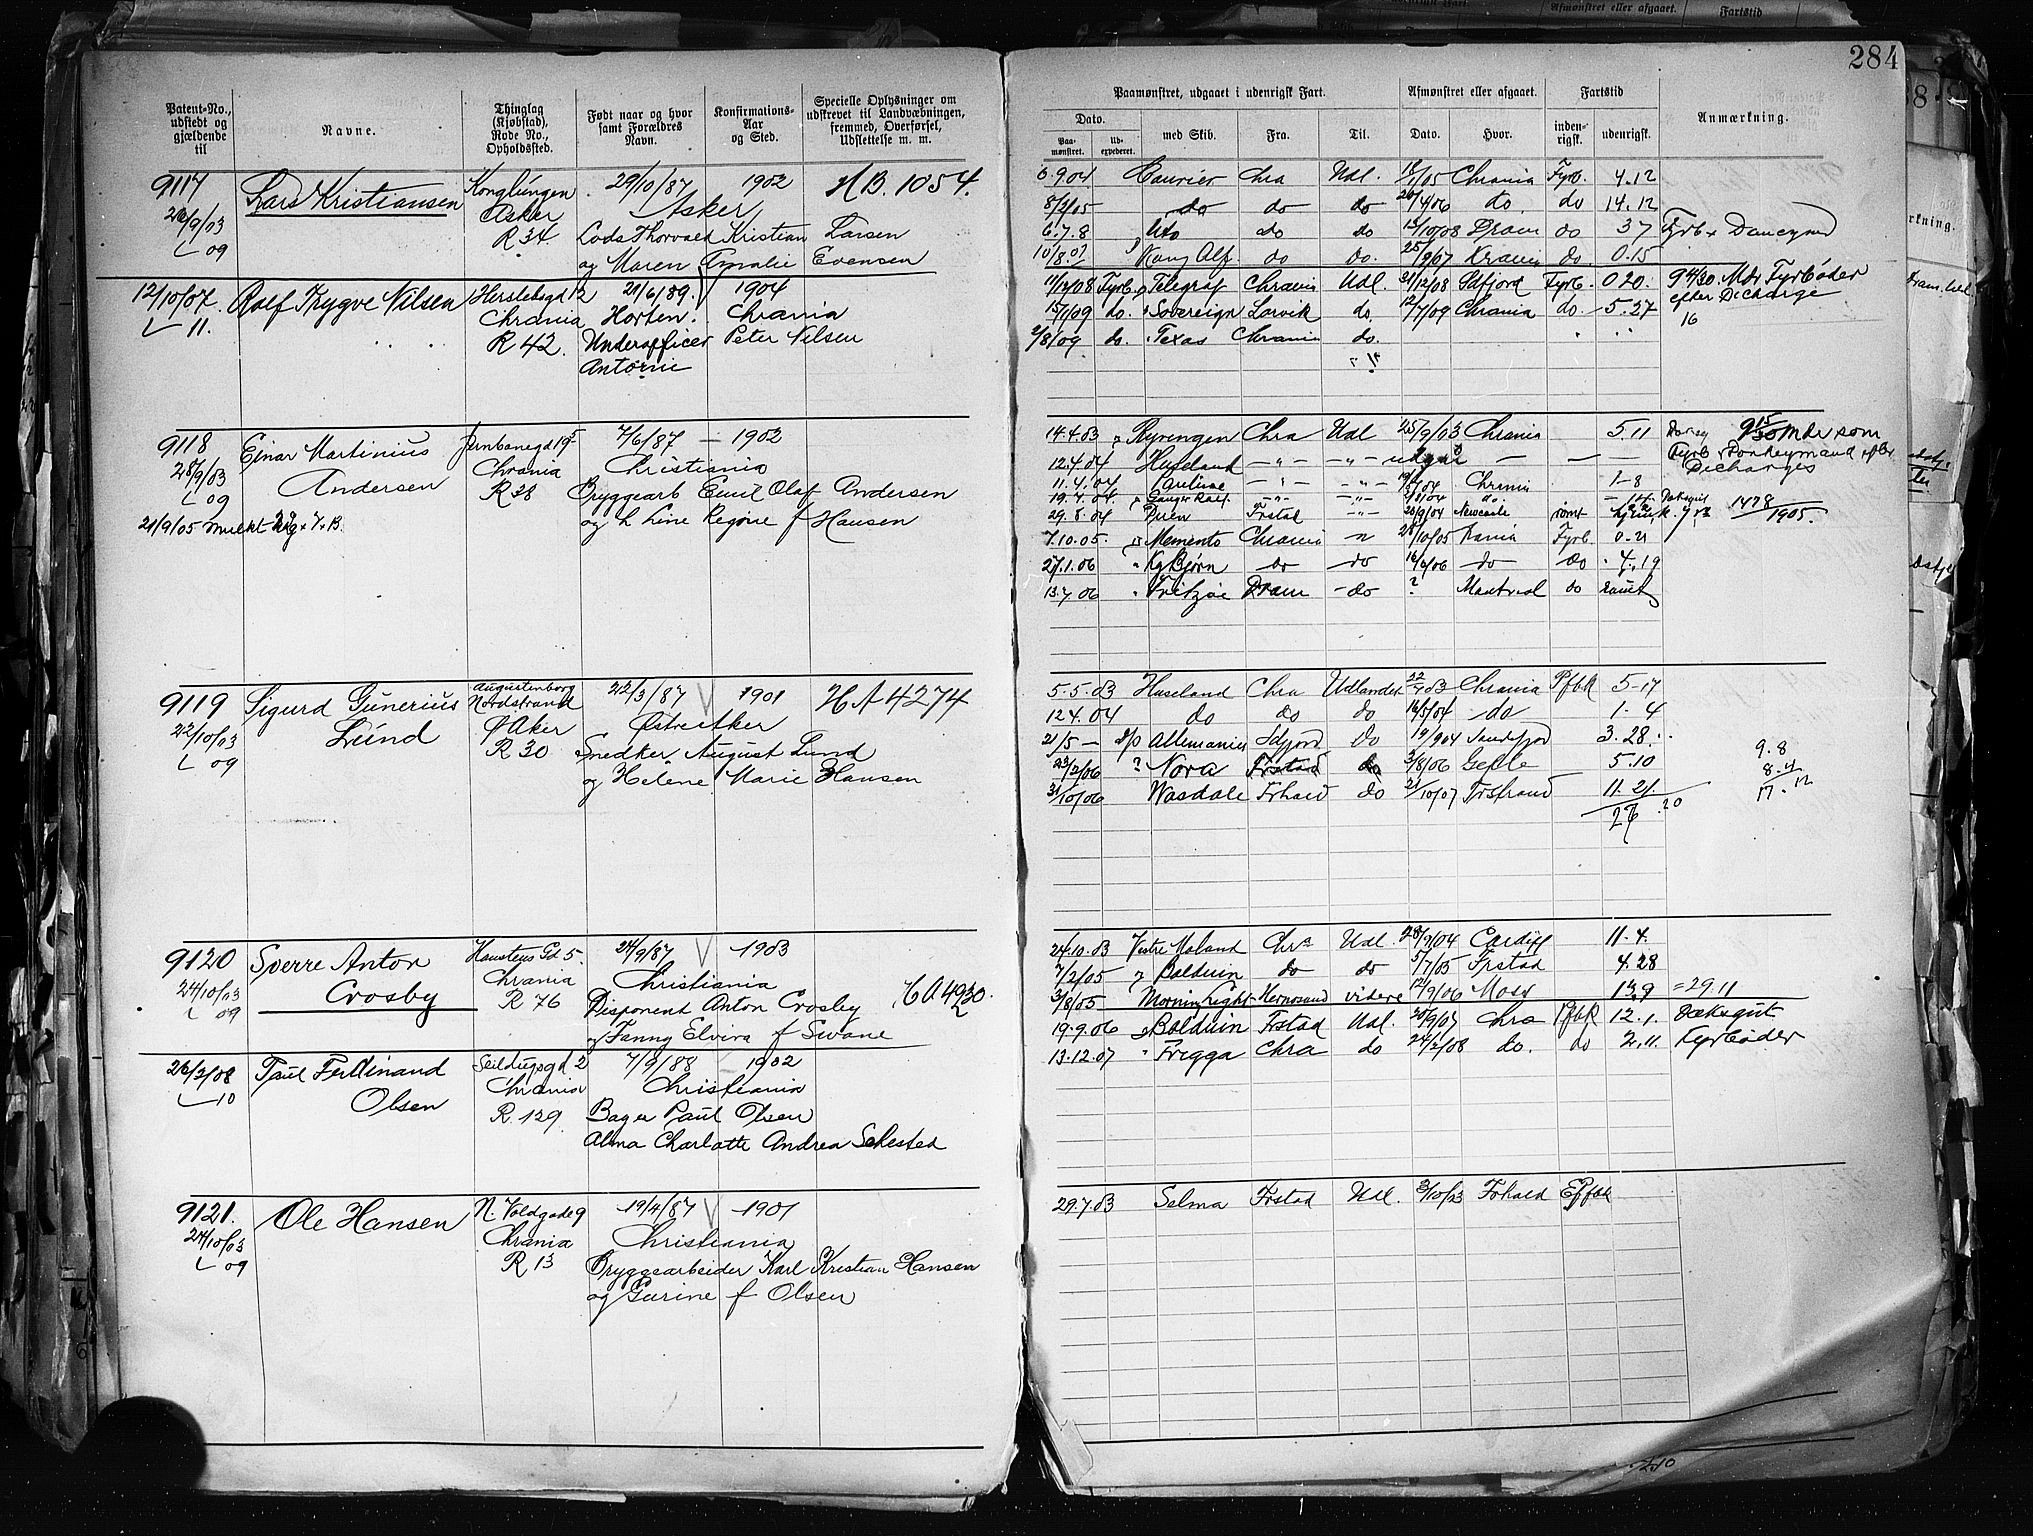 284
Patent-No., udstedt og gjældende til
Navne.
Thinglag (Kjøbstad), Rode No., Opholdssted.
Født naar og hvor samt Forældres Navn.
Konfirmations-Aar og Sted.
Specielle Oplysninger om udskrevet til Landvæbningen, fremmed, Overførsel, Udslettelse m. m.
Paamønstret, udgaaet i udenrigsk Fart.
Afmønstret eller afgaaet.
Fartstid
Anmærkning.
Dato.
Paa-mønstret.
Ud-expederet.
med Skib.
Fra.
Til.
Dato.
Hvor.
inden-rigsk.
udenrigsk.
9117 Lars Kristiansen Konglungen 29/10/87 1902 HB. 1054.
/9/03 Asker Asker
09 R 34 Lods Thorvald Kristian Larsen
og Maren Amalie Evensen
6.9.04 Courier Chra Udl. Chrania Fyrb. 4.12
8/2/05 do do do do. do 14.12
6.7.8 Uto do do 13/10/08 Dram do 37 Fyrb
Kong Alf do do. 25/9/07 Krania do. 0.15
12/10/07. Rolf Trygve Nilsen Herslebsgd 12 21/6/89. 1904
11. Chrania Horten. Chrania
R 42. Underofficer Peter Nilsen
Antonie
11/12/08 Fyrb. Telegraf Chrania Udl. 31/12/08 Fyrb. 0 20. Mdr Fyrbøder
efter Dicharge
15/1/09 do. Sovereign Larvik do. 12/7/09 Chrania do. 5.27
16
2/8/09 do. Texas Chrania do.
9118 Ejnar Martinius Jernbanegd 19 7/6/87 — 1902
28/9/03 Andersen Chrania Christiania
09 R 28 Bryggearb Emil Olaf Andersen
21/9/05 og Line Regine f Hansen
14.4.03 Ryvingen Chra Udl 25/9/03 Chrania 5.11 Mdr som
12.4.04 Huseland Fyrb
11.4.04 Chrania 1-8 Dicharges
19.4.04 Ganger Rolf do.
29.8.04 Frstad 20/9/04 Newcastle rømt 1478/1905.
7.10.05. Memento Chrania 28/10/05 Krania Fyrb 0.21
27.1.06 Kgbjørn do do 16/6/06 do do 4.19
13.7.06 Fritzøe Dram do ? Montreal do rømt
9119 Sigurd Gunerius Augustenborg 22/3/87 1901 HA 4274
22/10/03 Lund Nordstrand Østre Aker
09 Ø Aker Snedker August Lund
R 30 og Helene Marie Hansen
5.5.03 Huseland Chra Udlandet 22/9 03 Chrania Pfbk 5-17
12.4.04 do do do 16/5/04 do 1. 4
21/5 — Allemania do 19/9 04 Sandefjord 3.28.
23/2/06 ? Nora Frstad do 3/8/06 Gefle 5.10
31/10/06 Wasdale Frhald do 21/10/07 11.21
9.8
17.12
9120 Sverre Anton Hausteus Gd 5. 24/9/87 1903
24/10/03 Crosby Chrania Christiania
09 R 76 Disponent Anton Crosby
og Fanny Elvira f Svane
24.10.03 Vestre Moland Chra Udl. 28/9/04 Cardiff 11.4.
7/2/05 Balduin do do 5/7/05 Frstad 4.28
3/8/05 Morning Light Hernosand videre 12/9/06 Moss 13.9 = 29.11
19.9.06 Balduin Frstad Udl. 20/9/07 Chra Pfbk 12.1. Dæksgut
13.12.07 Frigga Chra do 24/2/08 do. do 2.11. Fyrbøder
26/2/08 Paul Ferdinand Seildugsgd 2 7/9/88 — 1902
10 Olsen Chrania Christiania
R. 129. Bager Paul Olsen
Alma Charlotte Andrea Sehested
9121. Ole Hansen N. Voldgade 9 19/4/87 1901
24/10/03 Chrania Christiania
09 R 13 Bryggearbeider Karl Kristian Hansen
og Gurine f Olsen
29.7.03 Selma Frstad Udl. 3/10/03 Frhald